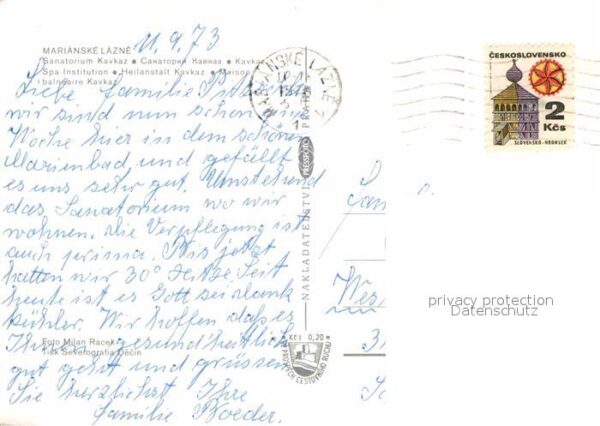 11.9.73
MARIÁNSKÉ LÁZNĚ
Sanatorium Kavkaz • Санаторий Кавказ • Kavkaz
Spa Institution • Heilanstalt Kavkaz • Maison
balnéaire Kavkaz
Liebe Familie
wir sind nun schon eine
Woche hier in dem schönen
Marienbad und gefällt
es uns sehr gut. Umstehend
das Sanatorium wo wir
wohnen. Die Verpflegung ist
auch prima. Bis jetzt
hatten wir 30° Hitze. Seit
heute ist es Gott sei dank
kühler. Wir hoffen daß es
Ihnen gesundheitlich
gut geht und grüssen
Sie herzlichst Ihre
Familie Boeder.
Foto Milan Racek
Tisk Severografia Děčín
MARIÁNSKÉ LÁZNĚ
1
NAKLADATELSTVÍ PRESSFOTO PRAHA
Kčs 0,20
ČESKOSLOVENSKO
2
Kčs
SLOVENSKO-HRONSEK
Wes
privacy protection
Datenschutz